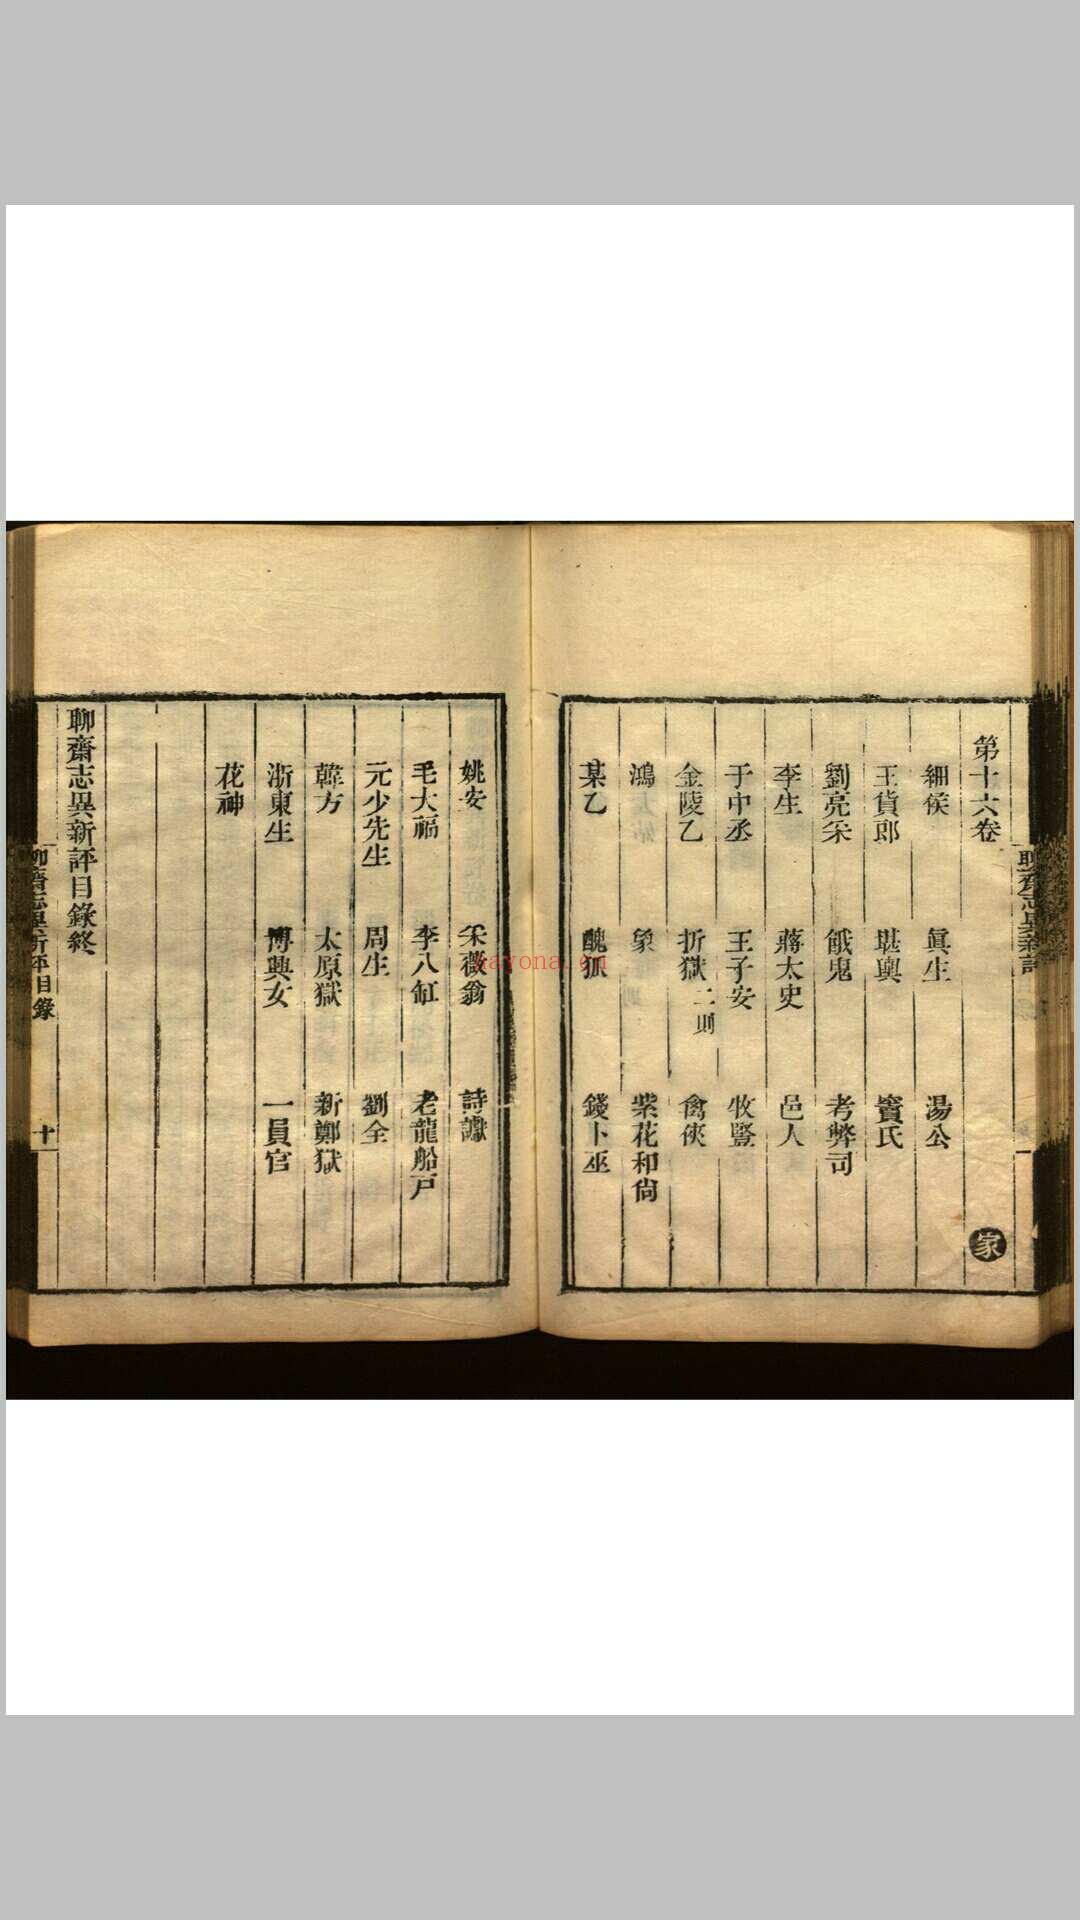 第十六卷
細侯 眞生 湯公
王貨郎 堪輿 竇氏
劉亮采 餓鬼 考弊司
李生 蔣太史 邑人
于中丞 王子安 牧豎
金陵乙 折獄二則 禽俠
鴻 象 紫花和尙
某乙 醜狐 錢卜巫
姚安 采薇翁 詩讞
毛大福 李八缸 老龍船戸
元少先生 周生 劉全
韓方 太原獄 新鄭獄
浙東生 博興女 一員官
花神
聊齋志異新評目錄終
聊齋志異新評目錄 十
家
kayona.cn